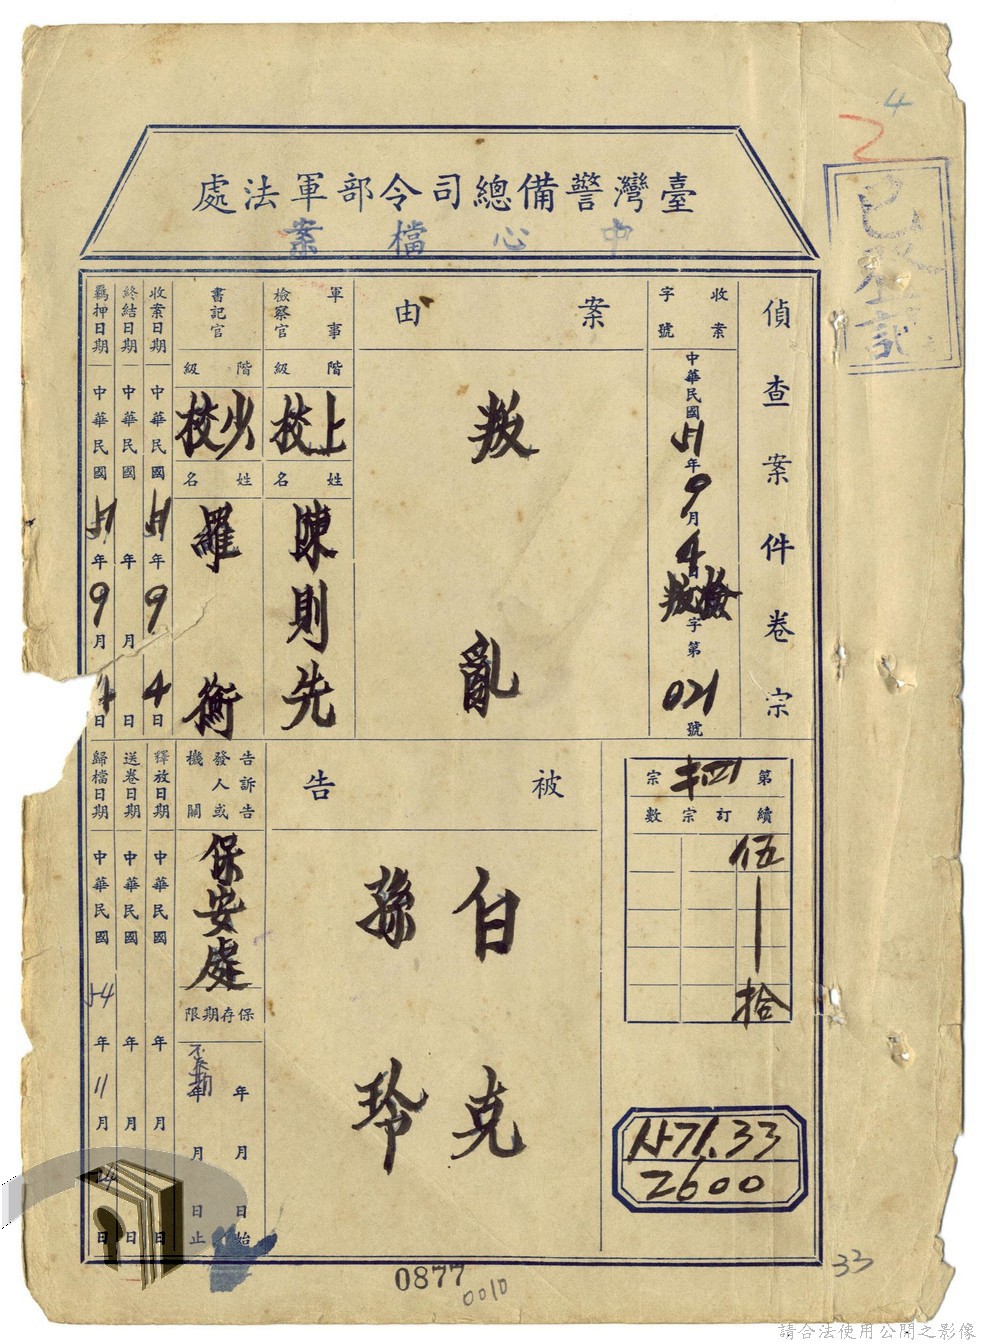 臺灣警備總司令部軍法處
中心檔案
已登記
4
偵查案件卷宗
收案字號
中華民國51年9月4日檢叛字第021號
案由
叛亂
軍事檢察官
階級
上校
姓名
陳則先
書記官
階級
少校
姓名
羅衡
收案日期
中華民國51年9月4日
終結日期
中華民國 年 月 日
羈押日期
中華民國51年9月4日
第 宗
續訂宗數
伍
拾
被告
白克
孫玲
告訴告發人或機關
保安處
保存期限
年 月 日始
年 月 日止
釋放日期
中華民國 年 月 日
送卷日期
中華民國 年 月 日
歸檔日期
中華民國54年11月 日
571.33
2600
0877
0010
33
請合法使用公開之影像